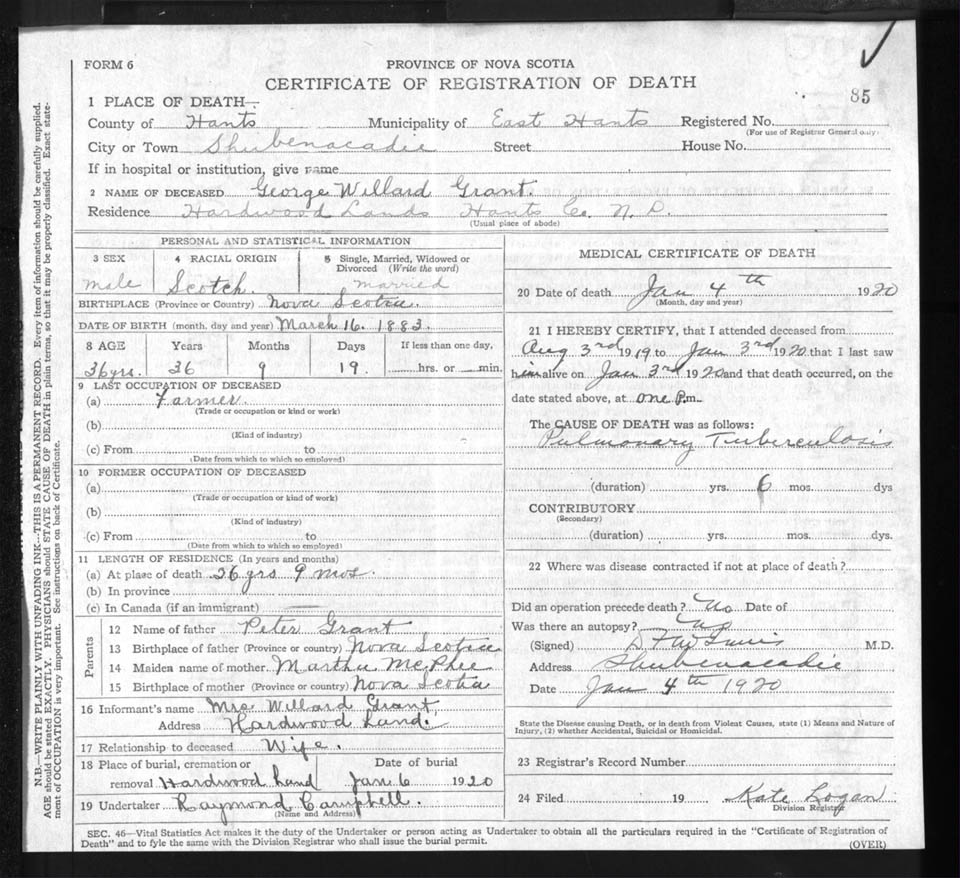 FORM 6
PROVINCE OF NOVA SCOTIA
CERTIFICATE OF REGISTRATION OF DEATH
85
1 PLACE OF DEATH—
County of Hants Municipality of East Hants Registered No.
(For use of Registrar General only)
City or Town Shubenacadie Street House No.
If in hospital or institution, give name
2 NAME OF DECEASED George Willard Grant.
Residence Hardwood Lands Hants Co. N. S.
(Usual place of abode)
PERSONAL AND STATISTICAL INFORMATION
3 SEX 4 RACIAL ORIGIN 5 Single, Married, Widowed or
Divorced (Write the word)
male Scotch. married
BIRTHPLACE (Province or Country) Nova Scotia.
DATE OF BIRTH (month, day and year) March 16. 1883.
8 AGE Years Months Days If less than one day,
36 yrs. 36 9 19. hrs. or min.
9 LAST OCCUPATION OF DECEASED
(a) Farmer.
(Trade or occupation or kind or work)
(b)
(Kind of industry)
(c) From to
(Date from which to which so employed)
10 FORMER OCCUPATION OF DECEASED
(a)
(Trade or occupation or kind of work)
(b)
(Kind of industry)
(c) From to
(Date from which to which so employed)
11 LENGTH OF RESIDENCE (In years and months)
(a) At place of death 36 yrs 9 mos.
(b) In province
(c) In Canada (if an immigrant)
Parents
12 Name of father Peter Grant
13 Birthplace of father (Province or country) Nova Scotia
14 Maiden name of mother. Martha McPhee
15 Birthplace of mother (Province or country) Nova Scotia
16 Informant's name Mrs Willard Grant,
Address Hardwood Land.
17 Relationship to deceased Wife.
18 Place of burial, cremation or Date of burial
removal Hardwood Land Jan. 6 1920
19 Undertaker Raymond Campbell.
(Name and Address)
MEDICAL CERTIFICATE OF DEATH
20 Date of death Jan 4th 1920
(Month, day and year)
21 I HEREBY CERTIFY, that I attended deceased from
Aug 3rd 1919 to Jan 3rd 1920 that I last saw
him alive on Jan 3rd 1920 and that death occurred, on the
date stated above, at one P.m.
The CAUSE OF DEATH was as follows:
Pulmonary Tuberculosis
(duration) yrs. 6 mos. dys
CONTRIBUTORY
(Secondary)
(duration) yrs. mos. dys.
22 Where was disease contracted if not at place of death?
Did an operation precede death? No Date of
Was there an autopsy? No
(Signed) M.D.
Address Shubenacadie
Date Jan 4th 1920
State the Disease causing Death, or in death from Violent Causes, state (1) Means and Nature of
Injury, (2) whether Accidental, Suicidal or Homicidal.
23 Registrar's Record Number
24 Filed 19 Kate Logan
Division Registrar
SEC. 46—Vital Statistics Act makes it the duty of the Undertaker or person acting as Undertaker to obtain all the particulars required in the "Certificate of Registration of
Death" and to fyle the same with the Division Registrar who shall issue the burial permit.
(OVER)
N.B.—WRITE PLAINLY WITH UNFADING INK—THIS IS A PERMANENT RECORD. Every item of information should be carefully supplied.
AGE should be stated EXACTLY. PHYSICIANS should STATE CAUSE OF DEATH in plain terms, so that it may be properly classified. Exact state-
ment of OCCUPATION is very important. See instructions on back of Certificate.